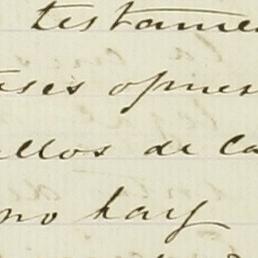 testame
eses opues
ellos de la
no hay